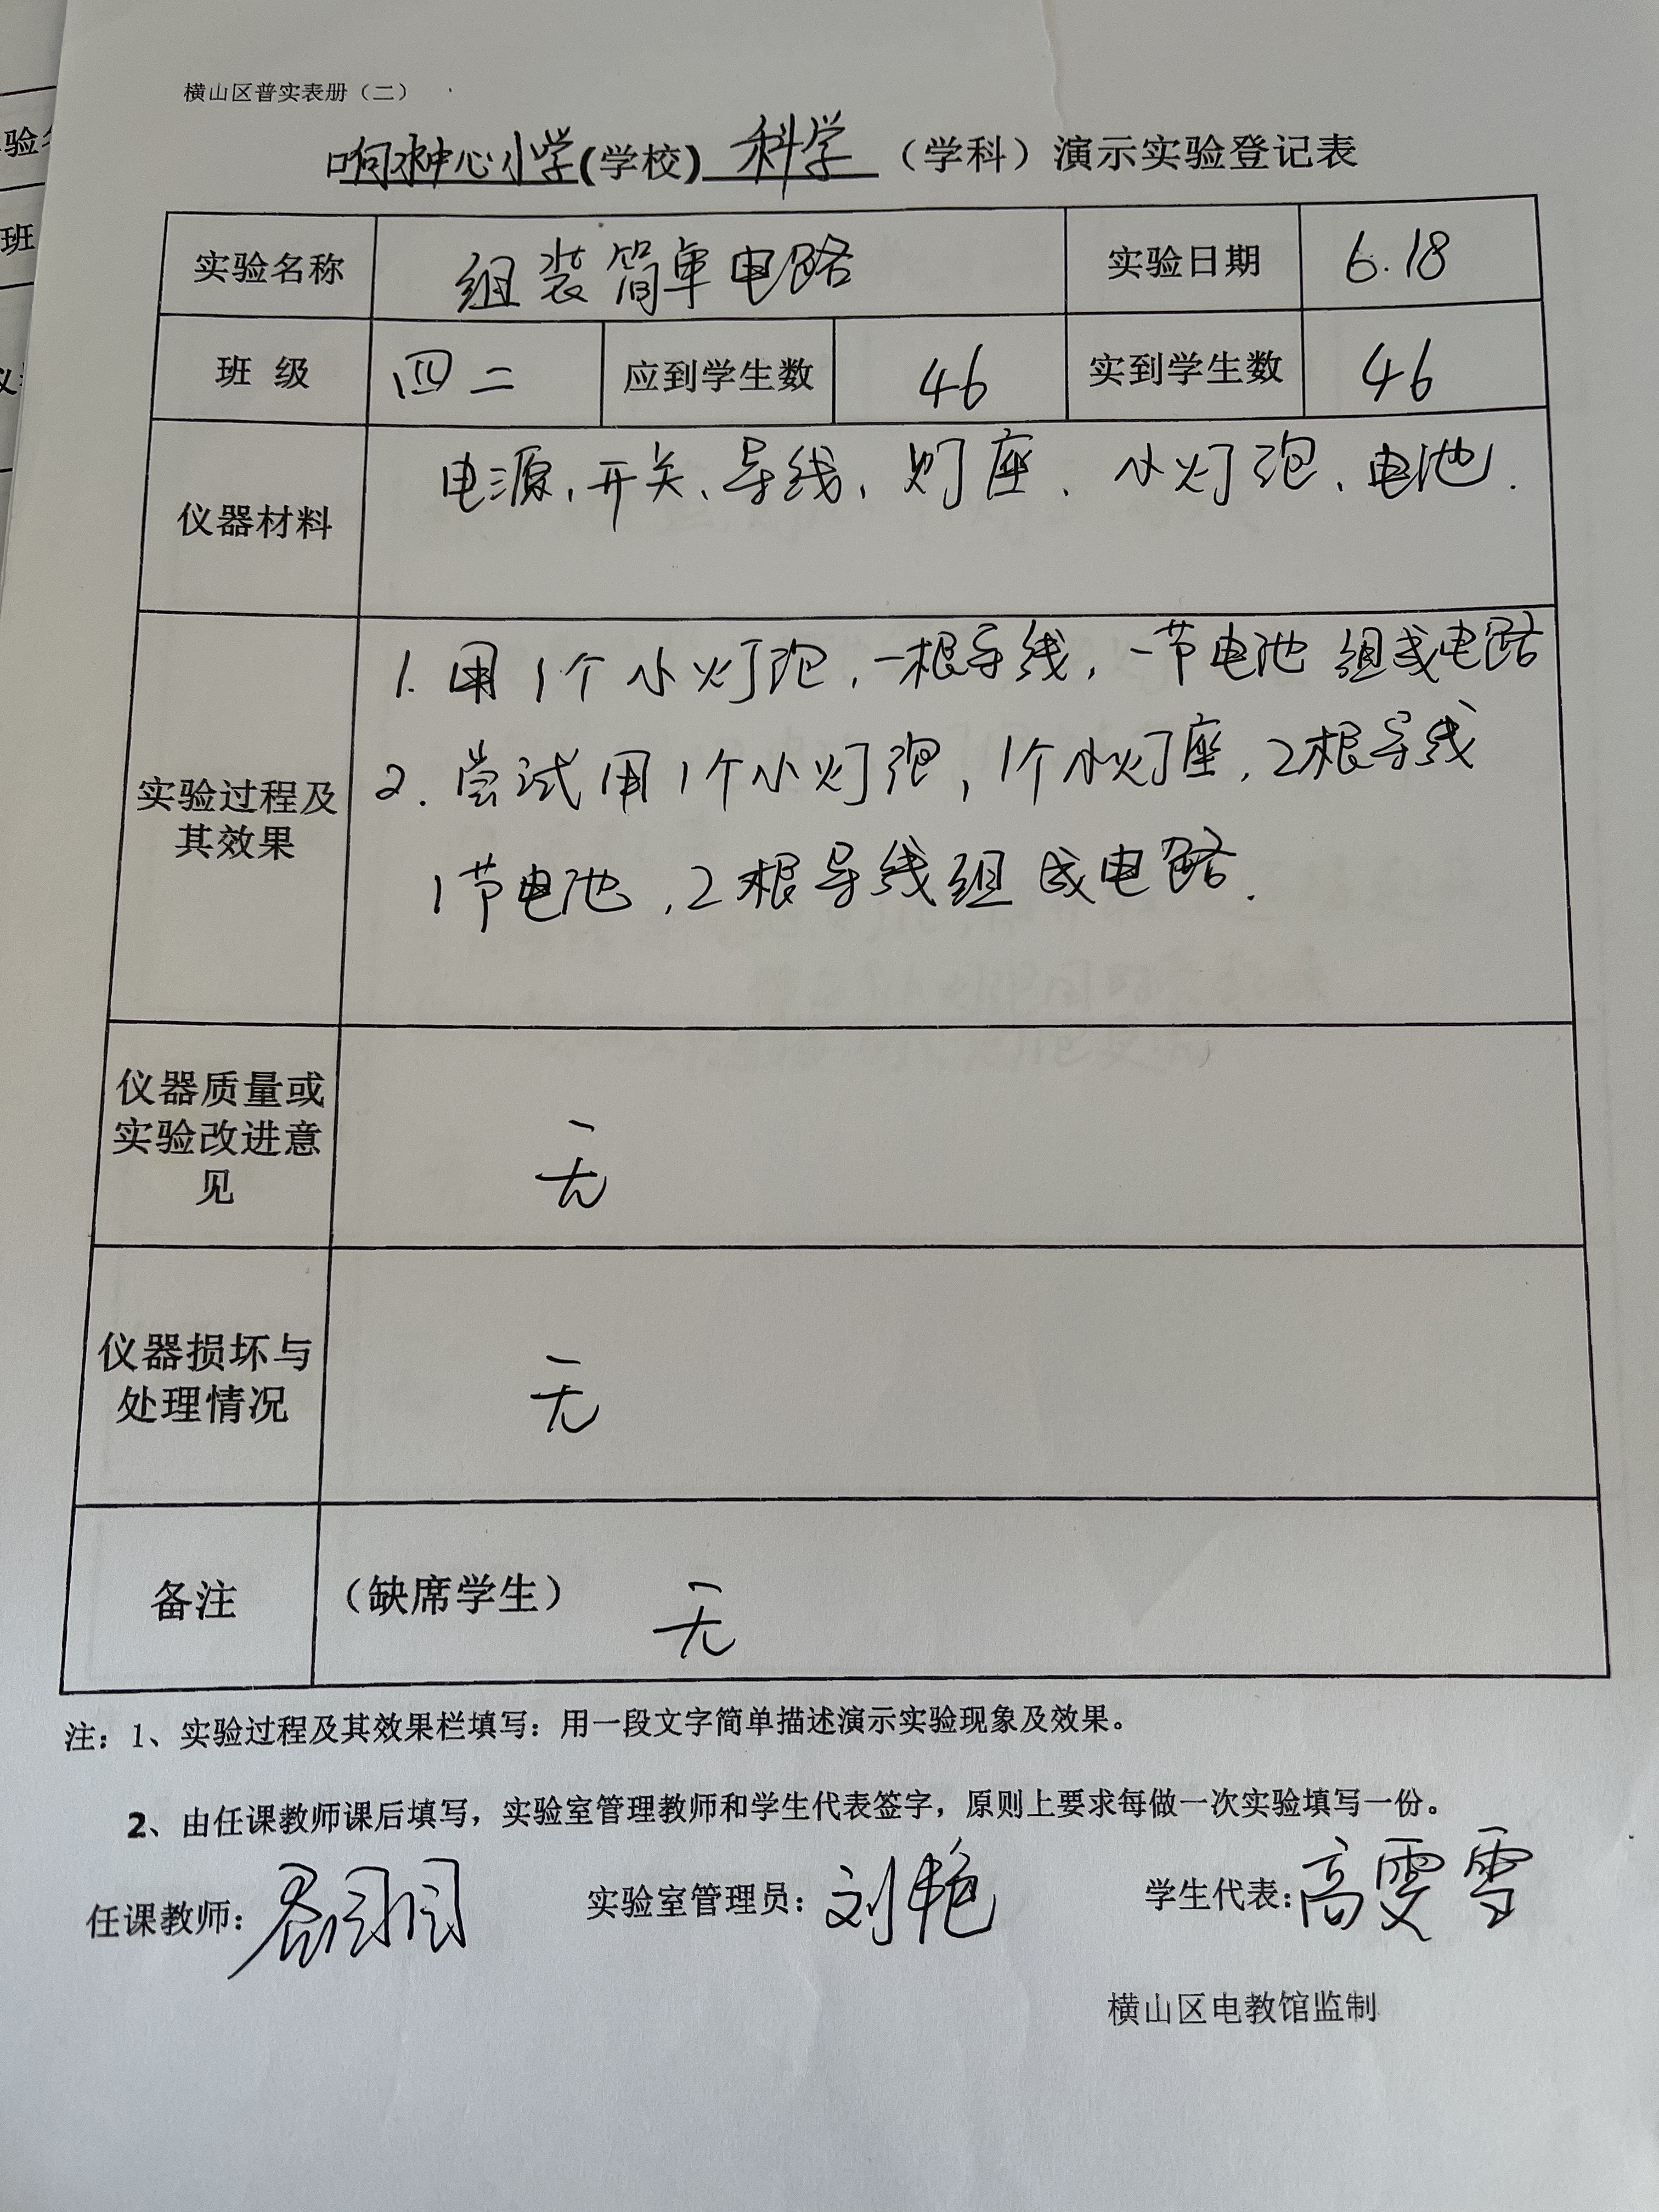 横山区普实表册（二）
响水中心小学(学校) 科学 （学科）演示实验登记表
实验名称 组装简单电路 实验日期 6.18
班 级 四二 应到学生数 46 实到学生数 46
仪器材料 电源、开关、导线、灯座、小灯泡、电池.
1. 用1个小灯泡,一根导线,一节电池组成电路
2. 尝试用1个小灯泡,1个小灯座,2根导线
实验过程及
其效果
1节电池,2根导线组成电路.
仪器质量或
实验改进意
见
无
仪器损坏与
处理情况
无
备注 （缺席学生） 无
注：1、实验过程及其效果栏填写：用一段文字简单描述演示实验现象及效果。
2、由任课教师课后填写，实验室管理教师和学生代表签字，原则上要求每做一次实验填写一份。
任课教师： 实验室管理员：刘艳 学生代表：高雯雪
横山区电教馆监制
验名
班
仪